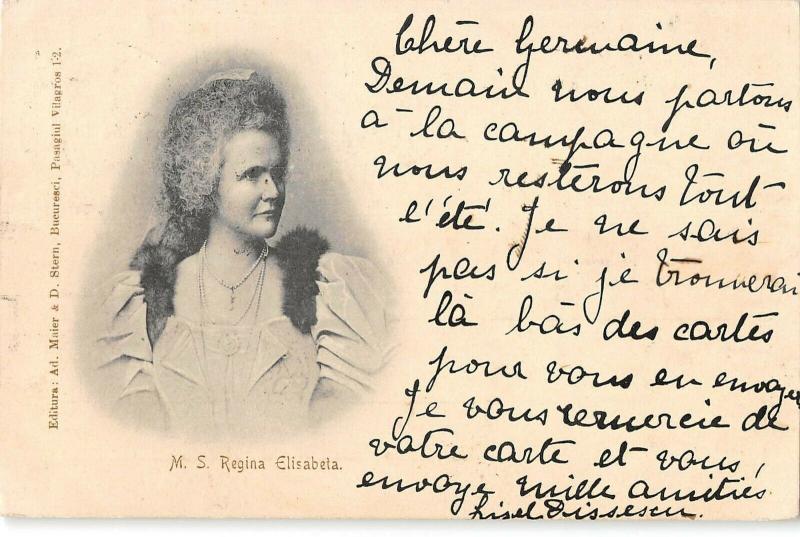 Editura: Ad. Maier & D. Stern, Bucuresci, Pasagiul Vilagros 1-2.
M. S. Regina Elisabeta.
Chère Germaine,
Demain nous partons
à la campagne où
nous resterons tout
l'été. Je ne sais
pas si je trouverai
là bàs des cartes
pour vous en envoyer
Je vous remercie de
votre carte et vous,
envoye mille amitiés
Lisel Dissescu.